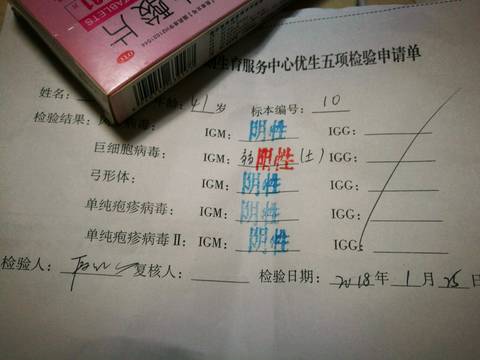 酸片
TABLETS
OTC
生育服务中心优生五项检验申请单
姓名： 41 岁 标本编号： 10
检验结果： IGM： 阴性 IGG：
巨细胞病毒： IGM： 弱阳性(±) IGG：
弓形体： IGM： 阴性 IGG：
单纯疱疹病毒： IGM： 阴性 IGG：
单纯疱疹病毒Ⅱ： IGM： 阴性 IGG：
检验人： 复核人： 检验日期： 2018年 1 月 25 日